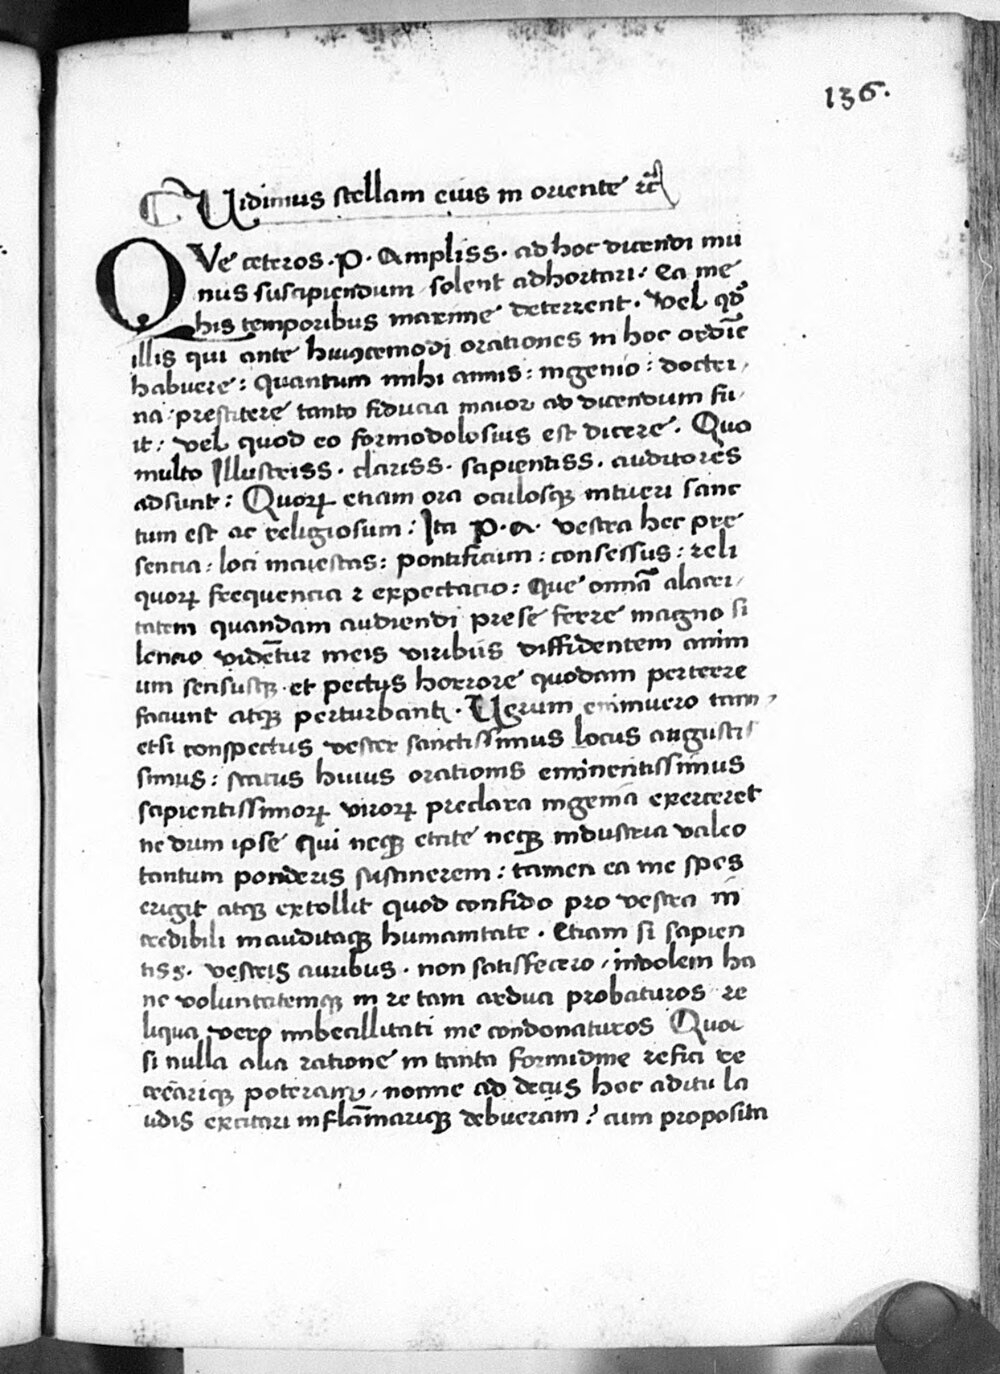 136.
Uidimus stellam eius in oriente ⁊c̃
QVe ceteros . P . Ampliss . ad hoc dicendi mu
nus suscipiendum solent adhortari . ea me
his temporibus maxime deterrent . Vel qđ
illis qui ante huiuscemodi orationes in hoc ordīe
habuere : quantum mihi annis : ingenio : doctri,
na : prestitere tanto fiducia maior ad dicendum fu,
it : vel quod eo formodolosius est dicere . Quo
multo Illustriss . clariss . sapientiss . auditores
adsunt : Quoꝝ etiam ora oculosqꝫ intueri sanc
tum est ac religiosum : Ita P . a . vestra hec pre
sentia : loci maiestas : pontificum : consessus : reli
quoꝝ frequencia ⁊ expectacio : Que omnā alacri,
tatem quandam audiendi pre se ferre magno si
lencio vidētur meis viribus diffidentem anim
um sensusqꝫ et pectus horrore quodam perterre
faciunt atqꝫ perturbant . Uerum enimuero tam,
etsi conspectus vester sanctissimus locus augustis
simus : status huius orationis eminentissimus
sapientissimoꝝ viroꝝ preclara ingenia exerceret
ne dum ipse qui neqꝫ etate neqꝫ industria valeo
tantum ponderis sustinerem : tamen ea me spes
erigit atqꝫ extollit quod confido pro vestra in
credibili inauditaqꝫ humanitate . Etiam si sapien
tiss . vestris auribus . non satisfecero , indolem ha
nc voluntatemqꝫ in re tam ardua probaturos re
liqua vero imbecillitati me condonaturos Quot
si nulla alia ratione in tanta formidine refici re
creāriqꝫ poteram , nonne ad decus hoc aditu la
udis excitari inflāmariqꝫ debueram ? cum proposita